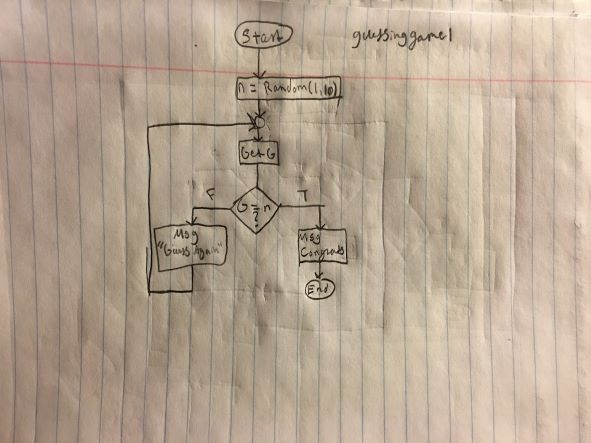 Start
guessinggame1
n = Random(1,10)
Get G
F
T
G = n
?
Msg
"Guess Again"
Msg
Congrats
End